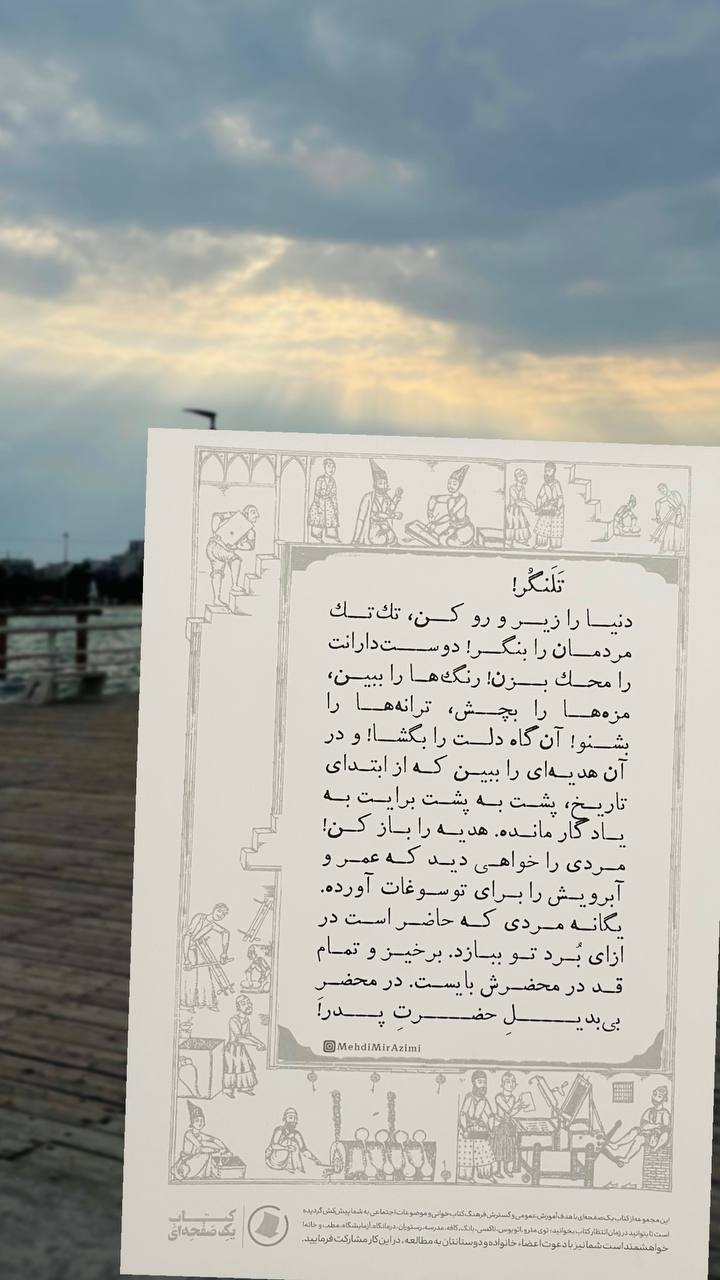 تَلَنگُر!
دنیا را زیر و رو کن، تك‌تك
مردمان را بنگر! دوست‌دارانت
را محك بزن! رنگ‌ها را ببین،
مزه‌ها را بچش، ترانه‌ها را
بشنو! آن‌گاه دلت را بگشا! و در
آن هدیه‌ای را ببین که از ابتدای
تاریخ، پشت به پشت برایت به
یادگار مانده. هدیه را باز کن!
مردی را خواهی دید که عمر و
آبرویش را برای تو سوغات آورده.
یگانه مردی که حاضر است در
ازای بُرد تو ببازد. برخیز و تمام
قد در محضرش بایست. در محضر
بی‌بدیلِ حضرتِ پدر!
MehdiMirAzimi
کتاب
یک صفحه‌ای
این مجموعه از کتاب یک‌صفحه‌ای با هدف آموزش عمومی و گسترش فرهنگ کتاب‌خوانی و موضوعات اجتماعی به شما پیش‌کش گردیده
است تا بتوانید در زمان انتظار کتاب بخوانید؛ توی مترو، اتوبوس، تاکسی، بانک، کافه، مدرسه، رستوران، درمانگاه، آزمایشگاه، مطب و خانه!
خواهشمند است شما نیز با دعوت اعضاء خانواده و دوستانتان به مطالعه، در این کار مشارکت فرمایید.